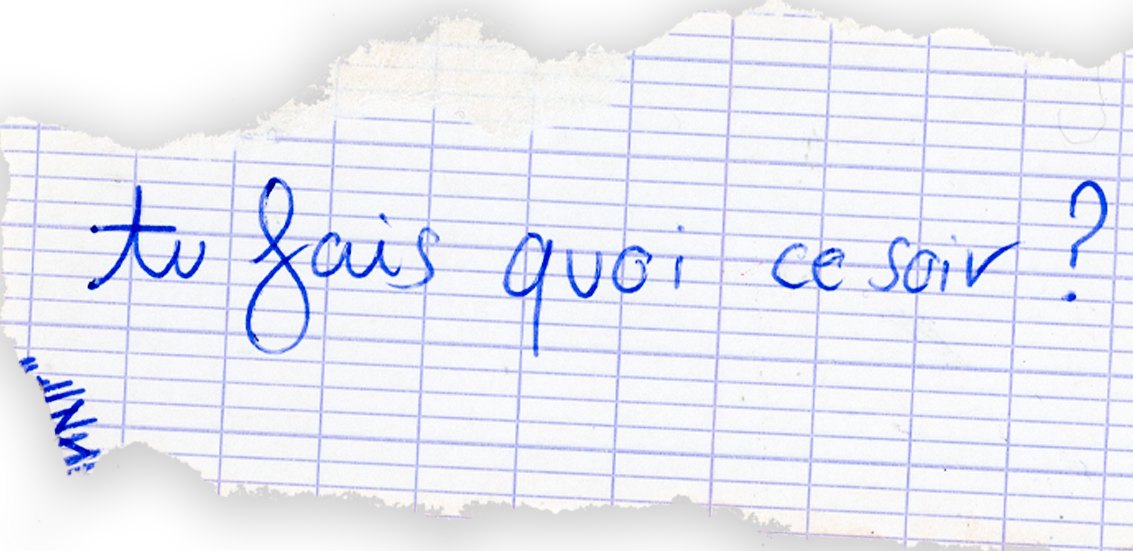 tu fais quoi ce soir ?